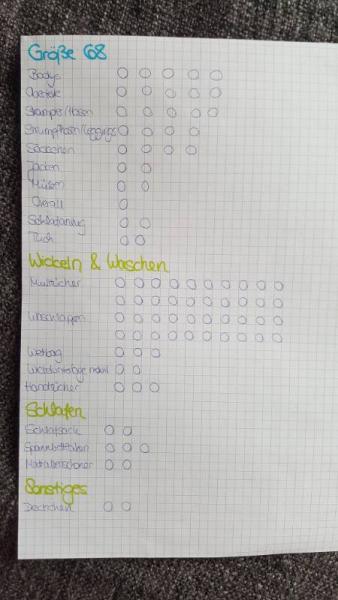 Größe 68
Bodys
Oberteile
Strampler/Hosen
Strumpfhosen/Leggings
Söckchen
Jacken
Mützen
Overall
Schlafanzug
Tuch
Wickeln & Waschen
Mulltücher
Waschlappen
Wetbag
Wickelunterlage mobil
Handtücher
Schlafen
Schlafsack
Spannbettlaken
Matratzenschoner
Sonstiges
Deckchen